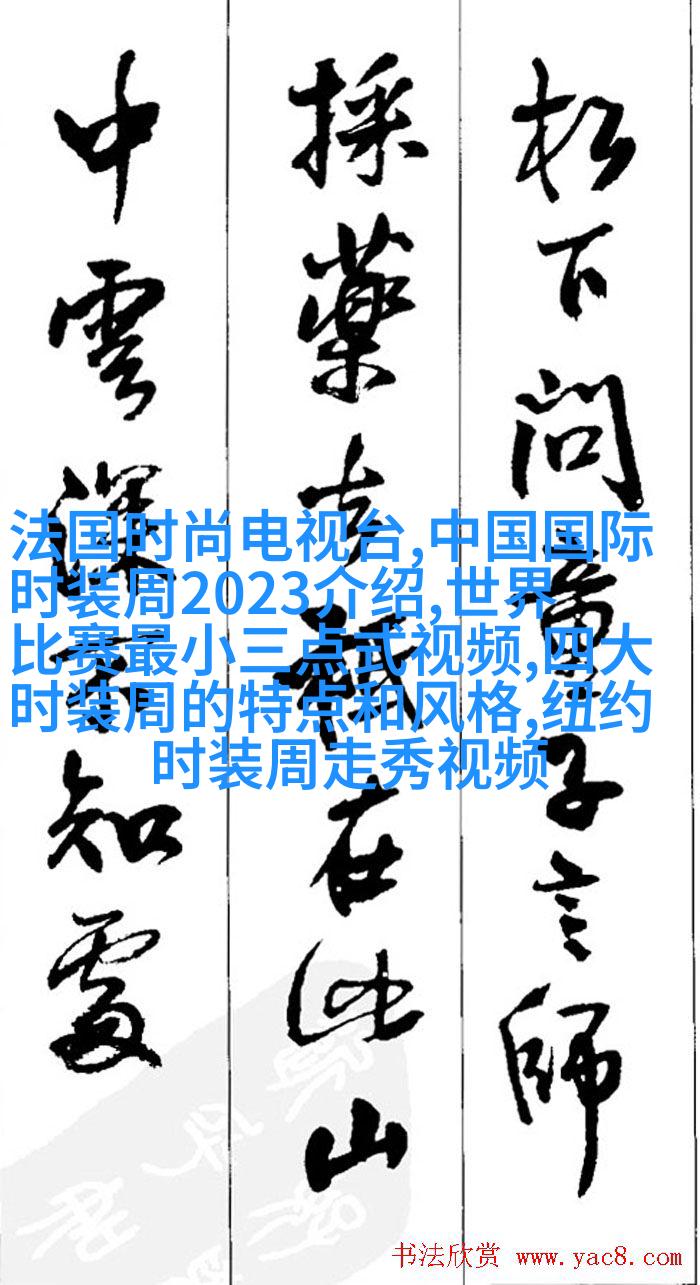 松下问童子言師
採藥去祇在此山
中雲深不知處
法国时尚电视台,中国国际
时装周2023介绍,世界
比赛最小三点式视频,四大
时装周的特点和风格,纽约
时装周走秀视频
书法欣赏 www.yac8.com